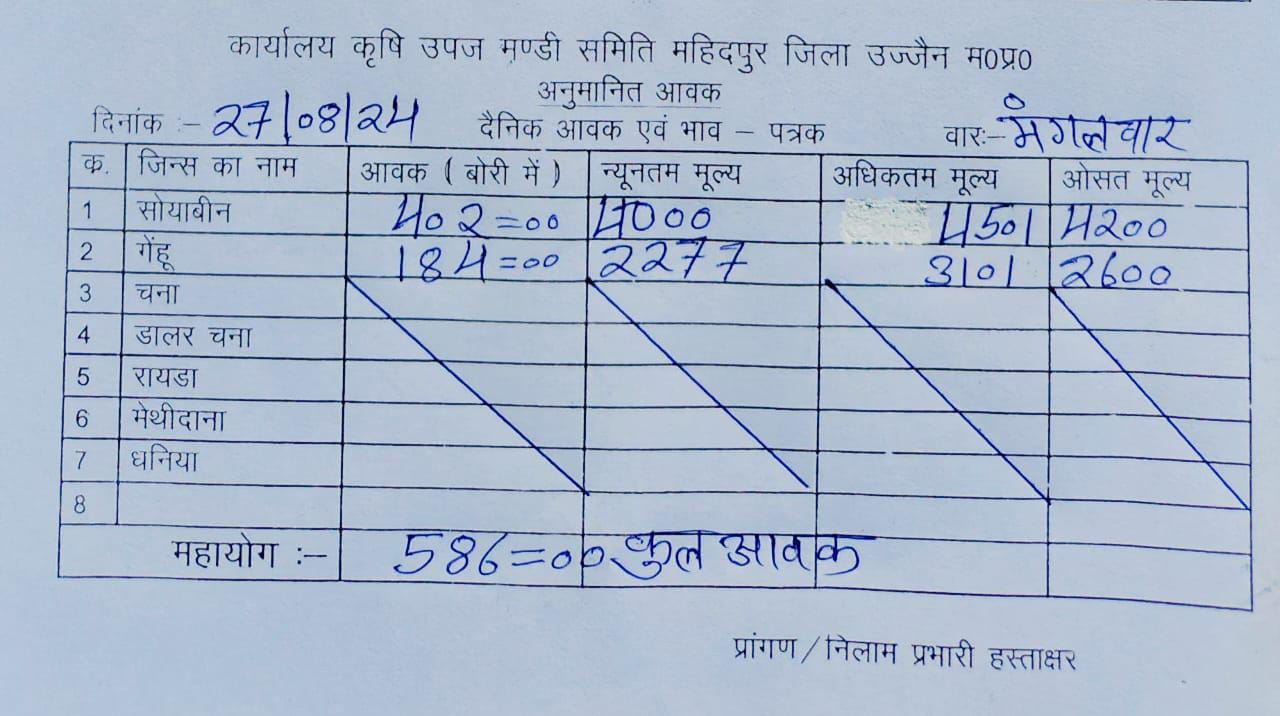 कार्यालय कृषि उपज मण्डी समिति महिदपुर जिला उज्जैन म०प्र०
अनुमानित आवक
दिनांक :- 27/08/24 दैनिक आवक एवं भाव – पत्रक वारः– मंगलवार
क. जिन्स का नाम आवक ( बोरी में ) न्यूनतम मूल्य अधिकतम मूल्य ओसत मूल्य
1 सोयाबीन 402=00 4000 4501 4200
2 गेंहू 184=00 2277 3101 2600
3 चना
4 डालर चना
5 रायडा
6 मेथीदाना
7 धनिया
8
महायोग :– 586=00 कुल आवक
प्रांगण/निलाम प्रभारी हस्ताक्षर